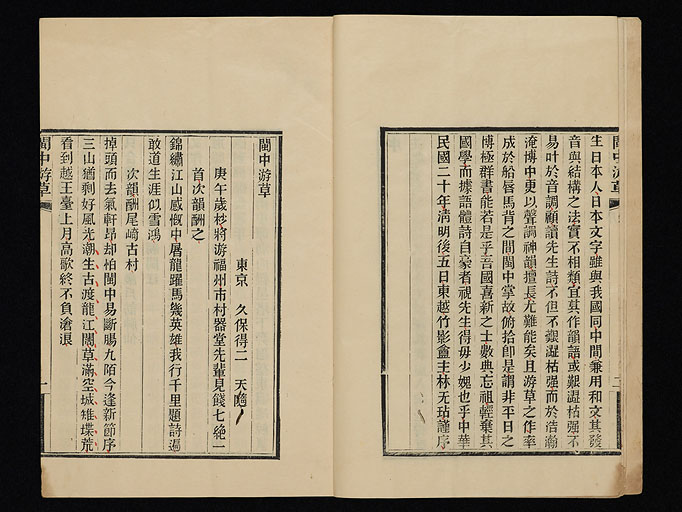 閩中游草
生日本人日本文字雖與我國同中間兼用和文其發
音與結構之法實不相類宜其作韻語或艱澀枯强不
易叶於音調顧讀先生詩不但不艱澀枯强而於浩瀚
淹博中更以聲調神韻擅長尤難能矣且游草之作率
成於船唇馬背之間閩中掌故俯拾卽是謂非平日之
博極群書能若是乎吾國喜新之士數典忘祖輕棄其
國學而摭語體詩自豪者視先生得毋少媿也乎中華
民國二十年淸明後五日東越竹影盦主林无玷謹序
二
閩中游草
東京　久保得二　天隨
庚午歲杪將游福州市村器堂先輩見餞七絶一
首次韻酬之
錦繡江山感慨中屠龍躍馬幾英雄我行千里題詩遍
敢道生涯似雪鴻
次韻酬尾崎古村
掉頭而去氣軒昂却怕閩中易斷腸九陌今逢新節序
三山猶剩好風光潮生古渡龍江闊草滿空城雉堞荒
看到越王臺上月高歌終不負滄浪
閩中游草
一